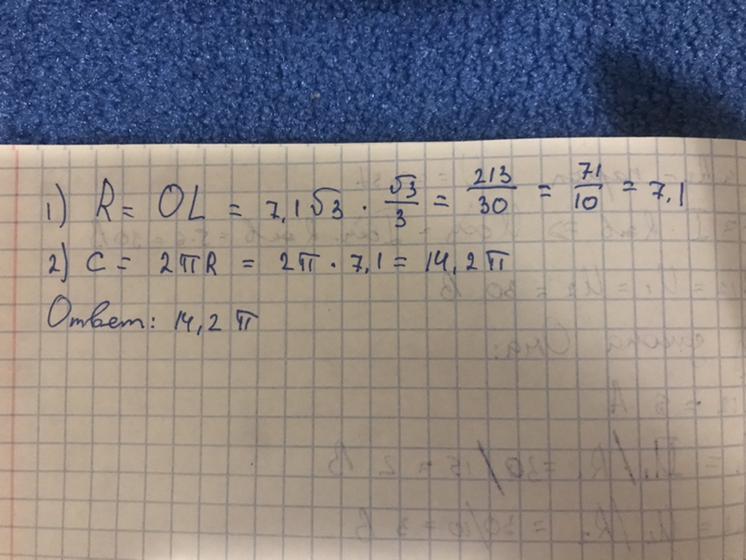 1) R = OL = 7,1√3 · √3/3 = 213/30 = 71/10 = 7,1
2) C = 2πR = 2π · 7,1 = 14,2π
Ответ: 14,2 π